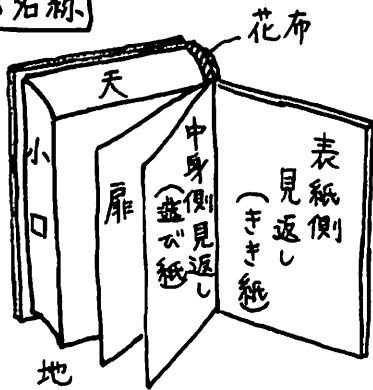 名称
花布
天
小口
扉
中身側見返し
(遊び紙)
表紙側
見返し
(きき紙)
地